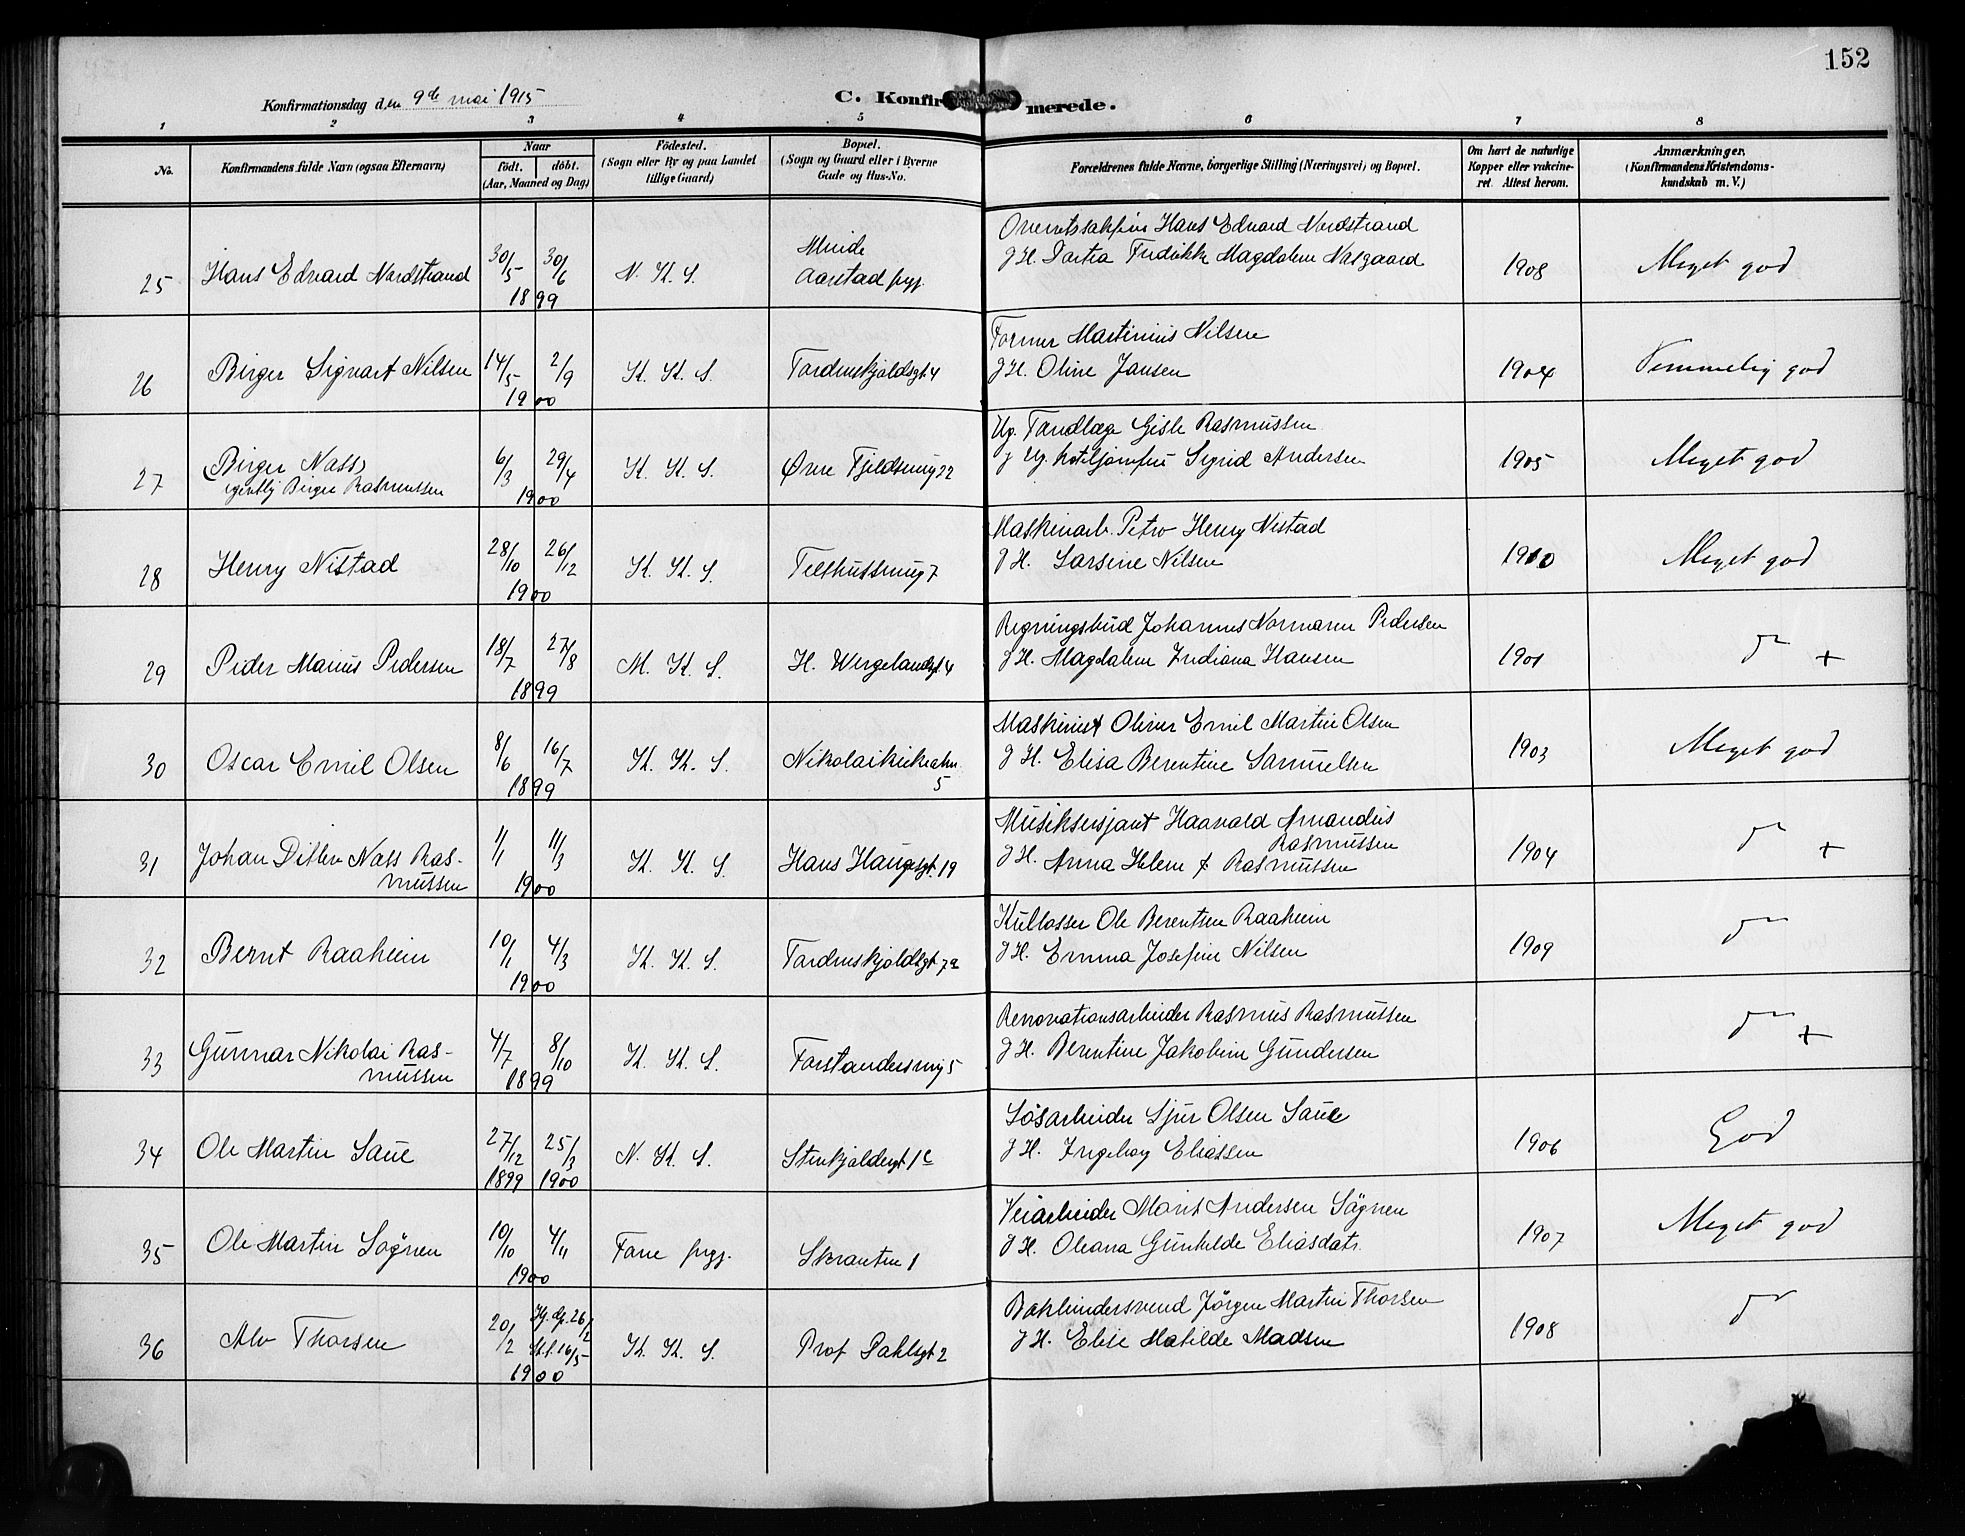 152
Konfirmationsdag den 9de mai 1915
C. Konfir merede.
1 2 3 4 5 6 7 8
No.
Konfirmandens fulde Navn (ogsaa Efternavn)
Naar
født. døbt.
(Aar, Maaned og Dag)
Fødested.
(Sogn eller By og paa Landet
tillige Gaard)
Bopæl.
(Sogn og Gaard eller i Byerne
Gade og Hus-No.
Forældrenes fulde Navne, borgerlige Stilling (Næringsvei) og Bopæl.
Om havt de naturlige
Kopper eller vakcine-
ret. Attest herom.
Anmærkninger.
(Konfirmandens Kristendoms-
kundskab m. V.)
25 Hans Edvard Nordstrand 30/5 30/6 1899 N. K. S. Minde
Aarstad prgj.
Hans Edvard Nordstrand
Fredrikke Magdalene Nasgaard 1908 Meget god
26 Birger Sigvart Nilsen 14/5 2/9 1900 K. K. S. Tordenskjoldsgt 4
Former Martinius Nilsen
& H. Oline Jansen 1904 Temmelig god
27 Birger Nass
egentlig Birger Rasmussen 6/3 29/4 1900 K. K. S. Øvre Fjeldsmug 22
Ug. Tandlæge Gisle Rasmussen
& Ug. hoteljomfru Sigrid Andersen 1905 Meget god
28 Henry Nistad 28/10 26/12 1900 K. K. S. Telthussmug 7
Maskinarb. Petro Henry Nistad
& H. Larsine Nilsen 1910 Meget god
29 Peder Marius Pedersen 18/7 27/8 1899 M. K. S. H. Wergelandsgt 4
Regningsbud Johannes Normann Pedersen
& H. Magdalene Indiana Hansen 1901 do +
30 Oscar Emil Olsen 8/6 16/7 1899 K. K. S. Nikolaikirkealm.
5
Maskinist Oliver Emil Martin Olsen
& H. Elisa Berentine Samuelsen 1903 Meget god
31 Johan Ditlev Nass Ras-
mussen 1/1 11/3 1900 K. K. S. Hans Haugesgt. 19
Musiksersjant Haavald Amandus
Rasmussen
& H. Anna Helene f. Rasmussen 1904 do +
32 Bernt Raaheim 10/1 4/3 1900 K. K. S. Tordenskjoldsgt 7a
Kullosser Ole Berentsen Raaheim
& H. Emma Josefine Nilsen 1909 do
33 Gunnar Nikolai Ras-
mussen 4/7 8/10 1899 K. K. S. Forstandersmug 5
Renovationsarbeider Rasmus Rasmussen
& H. Berentine Jakobine Gundersen do +
34 Ole Martin Saue 27/12 1899 25/3 1900 N. K. S. Stenkjeldergt 1c
Løsarbeider Sjur Olsen Saue
& H. Ingeborg Eliassen 1906 God
35 Ole Martin Søgnen 10/10 4/11 1900 Fane prgj. Skranten 1
Veiarbeider Mons Andersen Søgnen
& H. Oleana Gunhilde Eliasdatr. 1907 Meget god
36 Alv Thorsen 20/2 Hj. dp. 26/2
St.f. 16/5
1900 K. K. S. Prof Dahlsgt 2
Bokbindersvend Jørgen Martin Thorsen
& H. Elise Matilde Madsen 1908 do